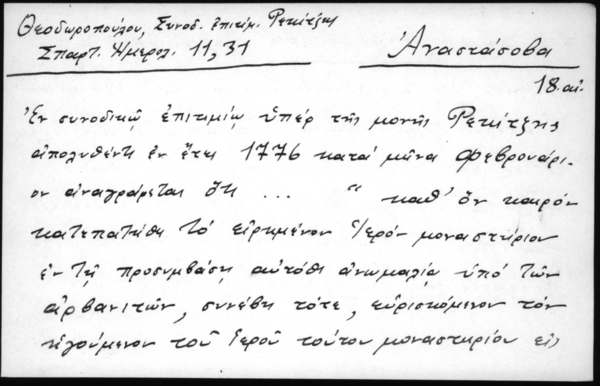 Θεοδωροπούλου, Συνοδ. ἐπιτίμ. Ρεκίτζης
Σπαρτ. Ἡμερολ. 11, 31
Ἀναστάσοβα
18 αἰ.
Ἐν συνοδικῷ ἐπιτιμίῳ ὑπέρ τῆς μονῆς Ρεκίτζης
ἀπολυθέντι ἐν ἔτει 1776 κατά μῆνα Φεβρουάρι-
ον ἀναγράφεται ὅτι ... " καθ' ὅν καιρόν
κατεπατήθη τό εἰρημένον ἱερόν μοναστήριον
ἐν τῇ προσυμβάσῃ αὐτόθι ἀνωμαλίᾳ ὑπό τῶν
ἀρβανιτῶν, συνέβη τότε, εὑρισκόμενον τόν
ἡγούμενον τοῦ ἱεροῦ τούτου μοναστηρίου εἰς